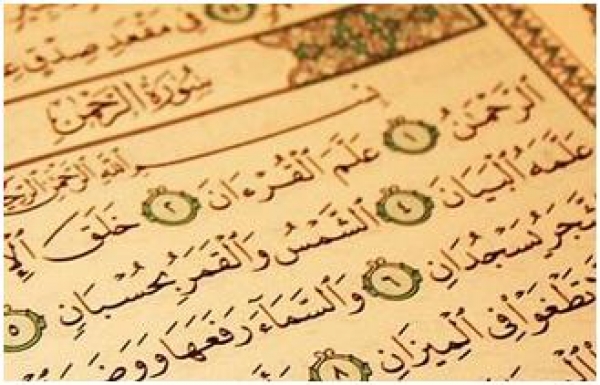 فِي مَقْعَدِ صِدْقٍ
سُورَةُ الرَّحْمَٰنِ
بِسْمِ اللَّهِ الرَّحْمَٰنِ
الرَّحْمَٰنُ ١ عَلَّمَ الْقُرْءَانَ ٢ خَلَقَ
عَلَّمَهُ الْبَيَانَ ٤ الشَّمْسُ وَالْقَمَرُ بِحُسْبَانٍ ٥
يَسْجُدَانِ ٦ وَالسَّمَآءَ رَفَعَهَا
تَطْغَوْا فِي الْمِيزَانِ ٨